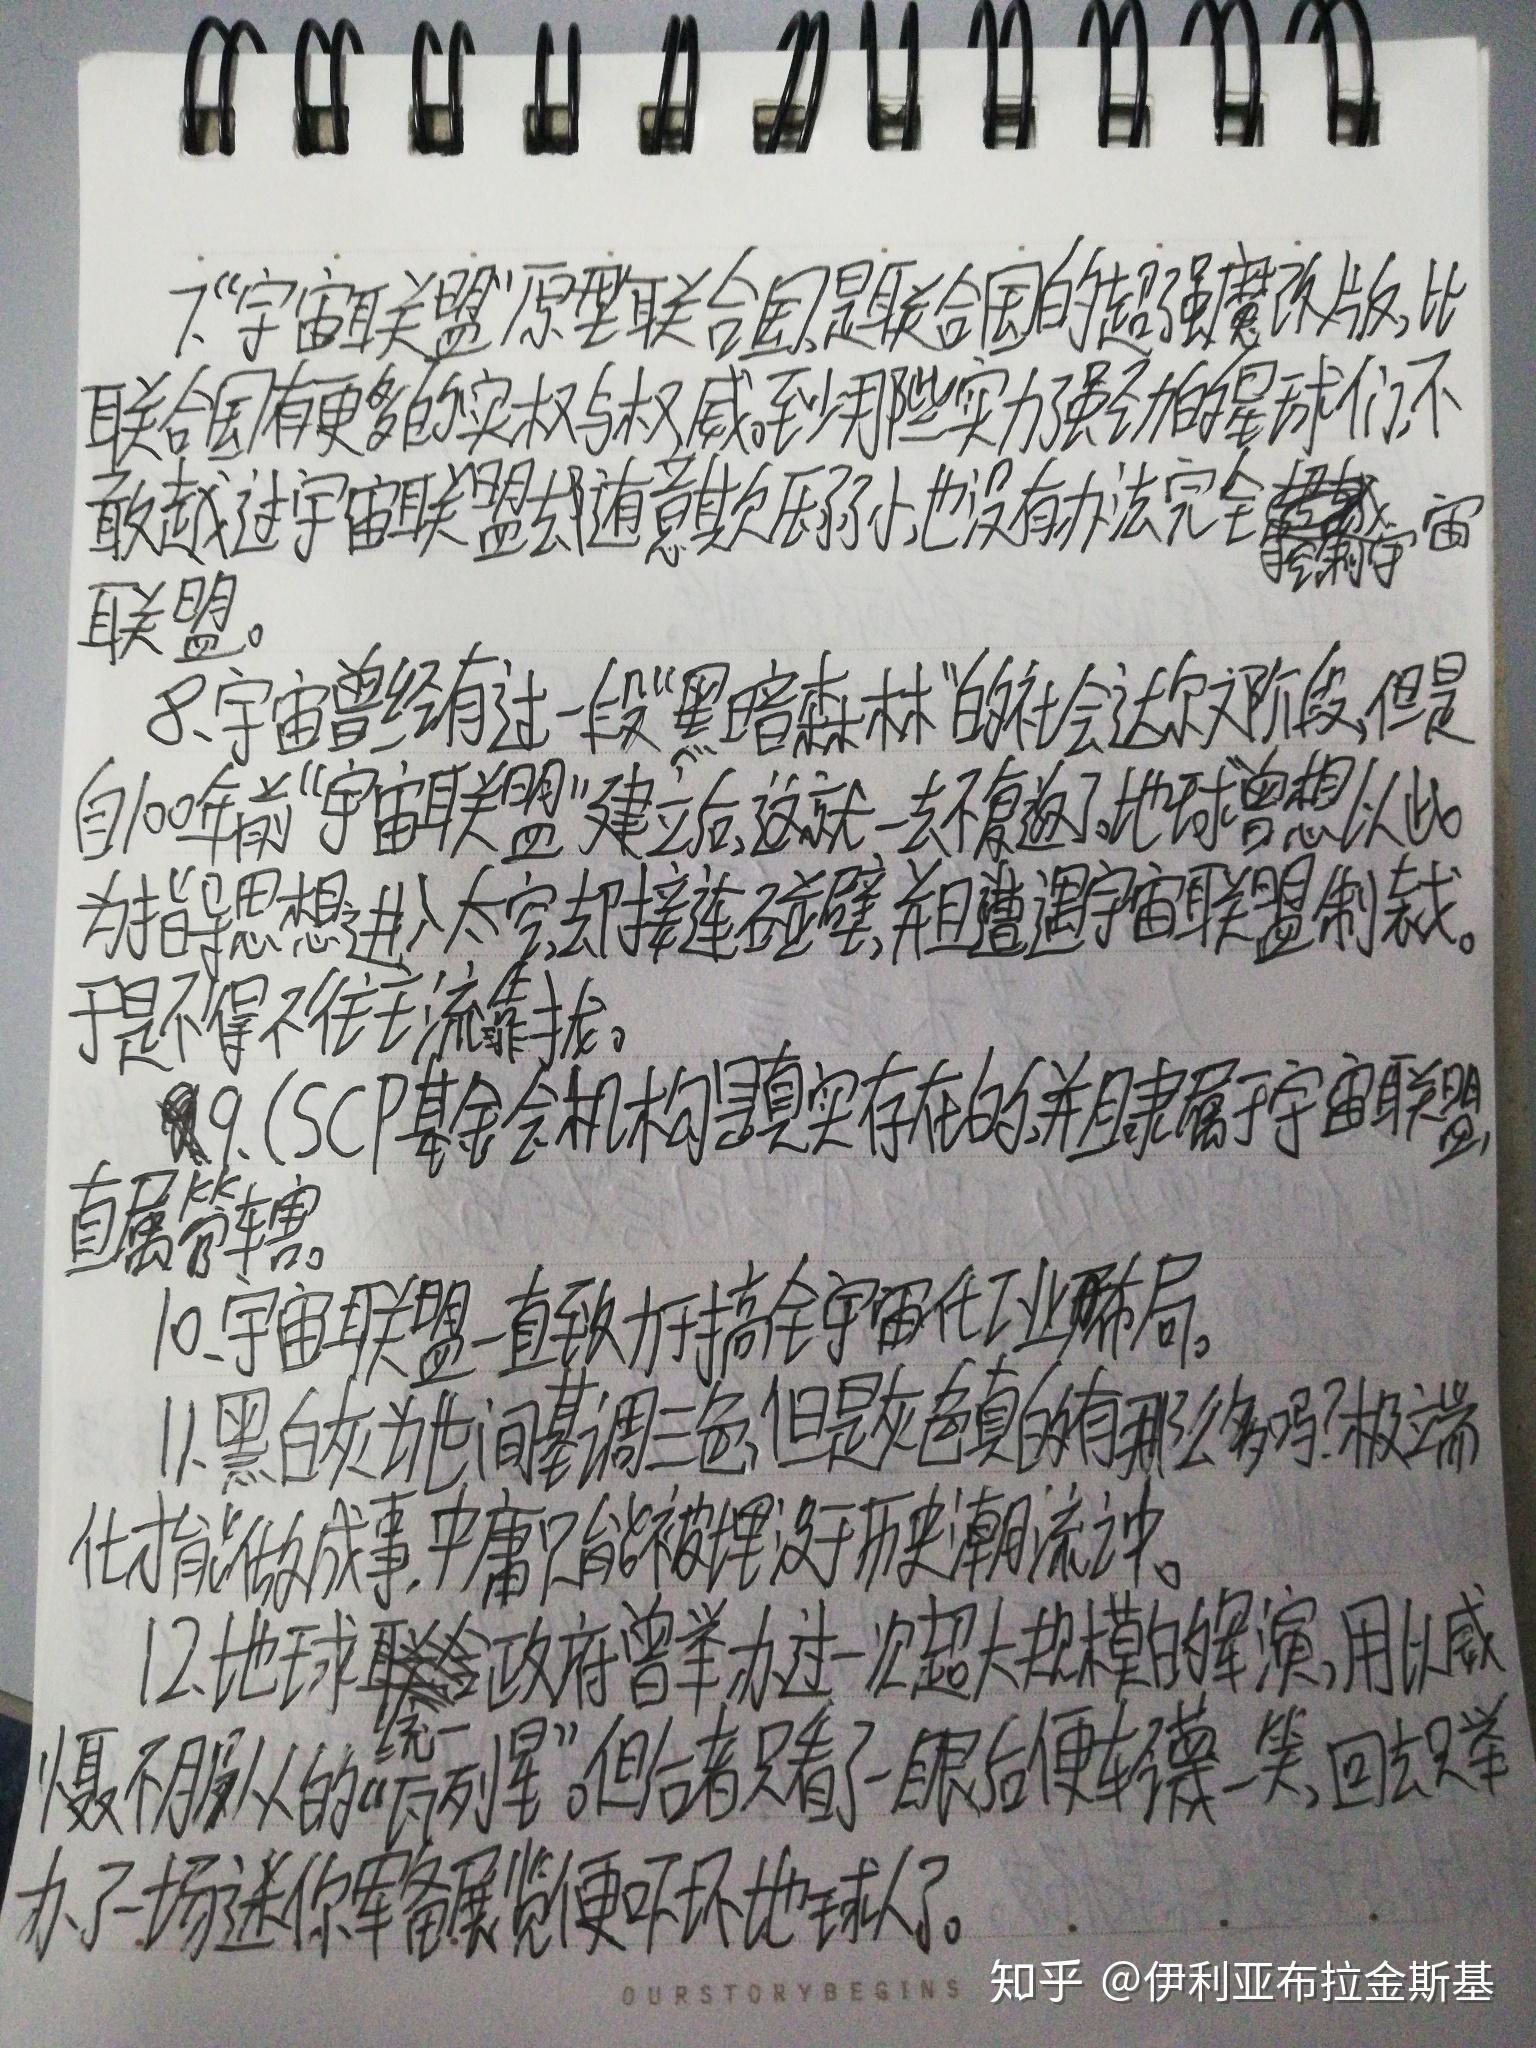 7、“宇宙联盟”原型联合国,是联合国的超强魔改版,比
联合国有更多的实权与权威。至少用那些实力强劲的星球们,不
敢越过宇宙联盟去随意欺压弱小,也没有办法完全控制宇宙
联盟。
8、宇宙曾经有过一段“黑暗森林”的社会达尔文阶段,但是
自100年前“宇宙联盟”建立后,这就一去不复返了。地球曾想以此
为指导思想进入太空,却接连碰壁,并且遭遇宇宙联盟制裁。
于是不得不往主流靠拢。
9.(SCP基金会机构是真实存在的,并且隶属于宇宙联盟,
直属管辖。
10、宇宙联盟一直致力于搞全宇宙化工业布局。
11、黑白灰为世间基调三色,但是灰色真的有那么多吗?极端
化才能做成事,中庸只能被埋没于历史潮流之中。
12、地球统一政府曾举办过一次超大规模的军演,用以威
慑不服从的“下列星”。但后者只看了一眼后便轻蔑一笑,回去只举
办了一场迷你军备展览便吓坏地球人了。
OURSTORYBEGINS
知乎 @伊利亚布拉金斯基